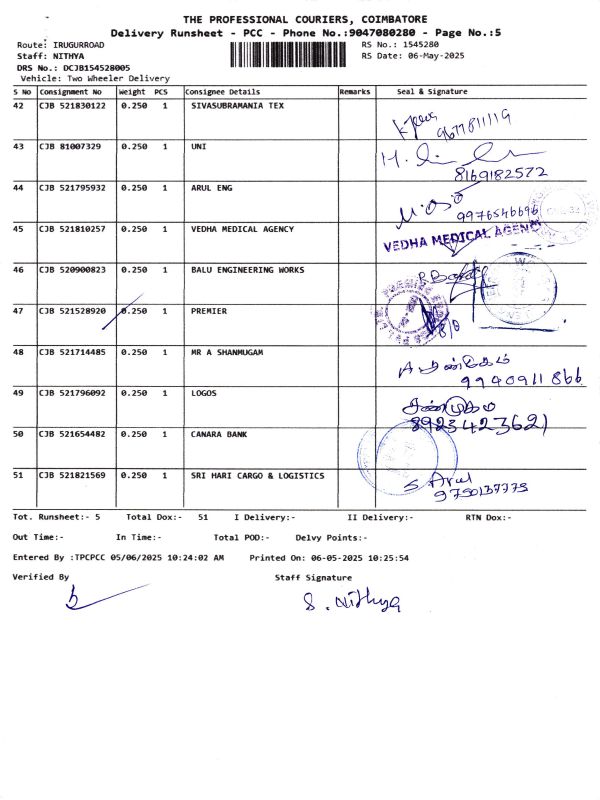 THE PROFESSIONAL COURIERS, COIMBATORE
Delivery Runsheet - PCC - Phone No.:9047080280 - Page No.:5
Route: IRUGURROAD RS No.: 1545280
Staff: NITHYA RS Date: 06-May-2025
DRS No.: DCJB154528005
Vehicle: Two Wheeler Delivery
S No Consignment No Weight PCS Consignee Details Remarks Seal & Signature
42 CJB 521830122 0.250 1 SIVASUBRAMANIA TEX
9677811119
43 CJB 81007329 0.250 1 UNI
8169182572
44 CJB 521795932 0.250 1 ARUL ENG
9976546696
45 CJB 521810257 0.250 1 VEDHA MEDICAL AGENCY
VEDHA MEDICAL AGENCY
46 CJB 520900823 0.250 1 BALU ENGINEERING WORKS
47 CJB 521528920 0.250 1 PREMIER
48 CJB 521714485 0.250 1 MR A SHANMUGAM
9940911866
49 CJB 521796092 0.250 1 LOGOS
சண்முகம்
8923423621
50 CJB 521654482 0.250 1 CANARA BANK
51 CJB 521821569 0.250 1 SRI HARI CARGO & LOGISTICS
S Arul
9750137775
Tot. Runsheet:- 5 Total Dox:- 51 I Delivery:- II Delivery:- RTN Dox:-
Out Time:- In Time:- Total POD:- Delvy Points:-
Entered By :TPCPCC 05/06/2025 10:24:02 AM Printed On: 06-05-2025 10:25:54
Verified By Staff Signature
S. Nithya